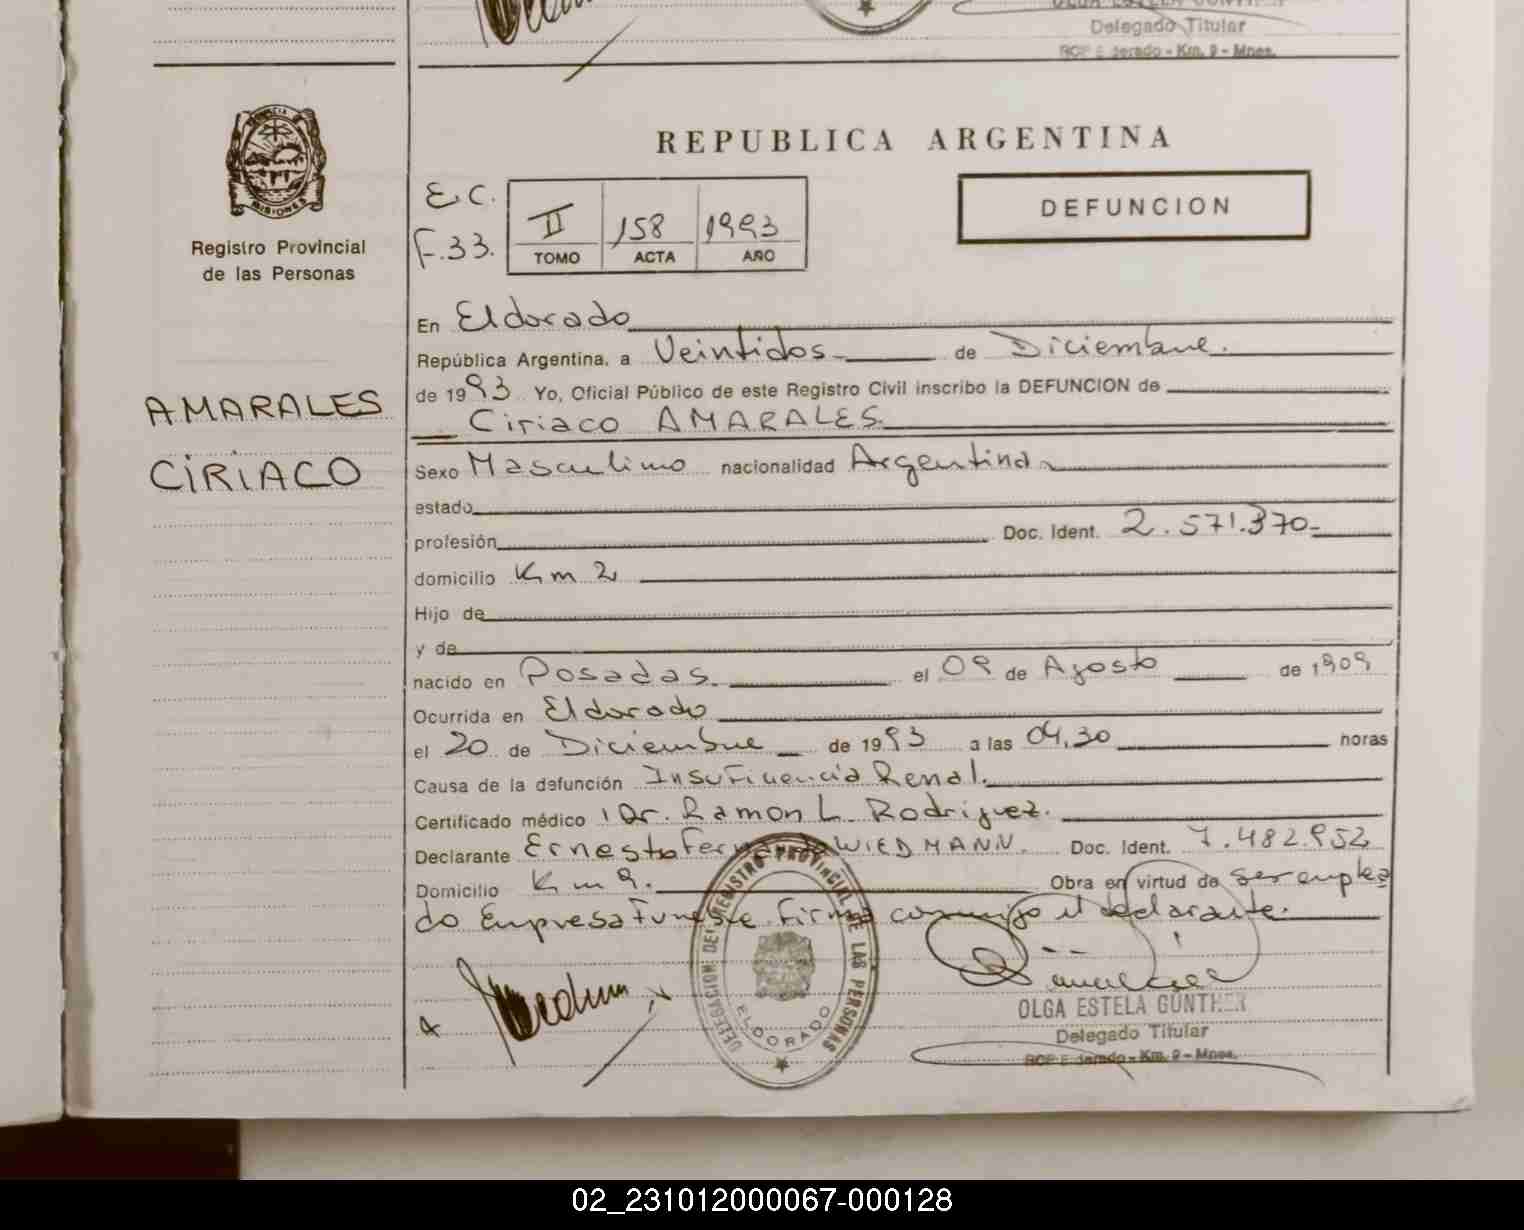 OLGA ESTELA GUNTHER
Delegado Titular
RCP Eldorado - Km. 9 - Mnes.
PROVINCIA DE
MISIONES
Registro Provincial
de las Personas
REPUBLICA ARGENTINA
E.C.
F.33.
II 158 1993
TOMO ACTA AÑO
DEFUNCION
En Eldorado
República Argentina, a Veintidos de Diciembre.
de 1993 Yo, Oficial Público de este Registro Civil inscribo la DEFUNCION de
Ciriaco AMARALES.
AMARALES
CIRIACO
Sexo Masculino nacionalidad Argentina
estado
profesión Doc. Ident. 2.571.370-
domicilio Km 2
Hijo de
y de
nacido en Posadas. el 09 de Agosto de 1909
Ocurrida en Eldorado
el 20 de Diciembre de 1993 a las 04,30 horas
Causa de la defunción Insuficiencia Renal.
Certificado médico Dr. Ramon L. Rodriguez.
Declarante Ernesto Fernando WIEDMANN. Doc. Ident. 7.482.952
Domicilio Km 9. Obra en virtud de ser emplea
do Empresa Funebre. Firma conmigo el declarante.
DELEGACION DEL REGISTRO PROVINCIAL DE LAS PERSONAS
ELDORADO
OLGA ESTELA GUNTHER
Delegado Titular
RCP Eldorado - Km. 9 - Mnes.
02_231012000067-000128